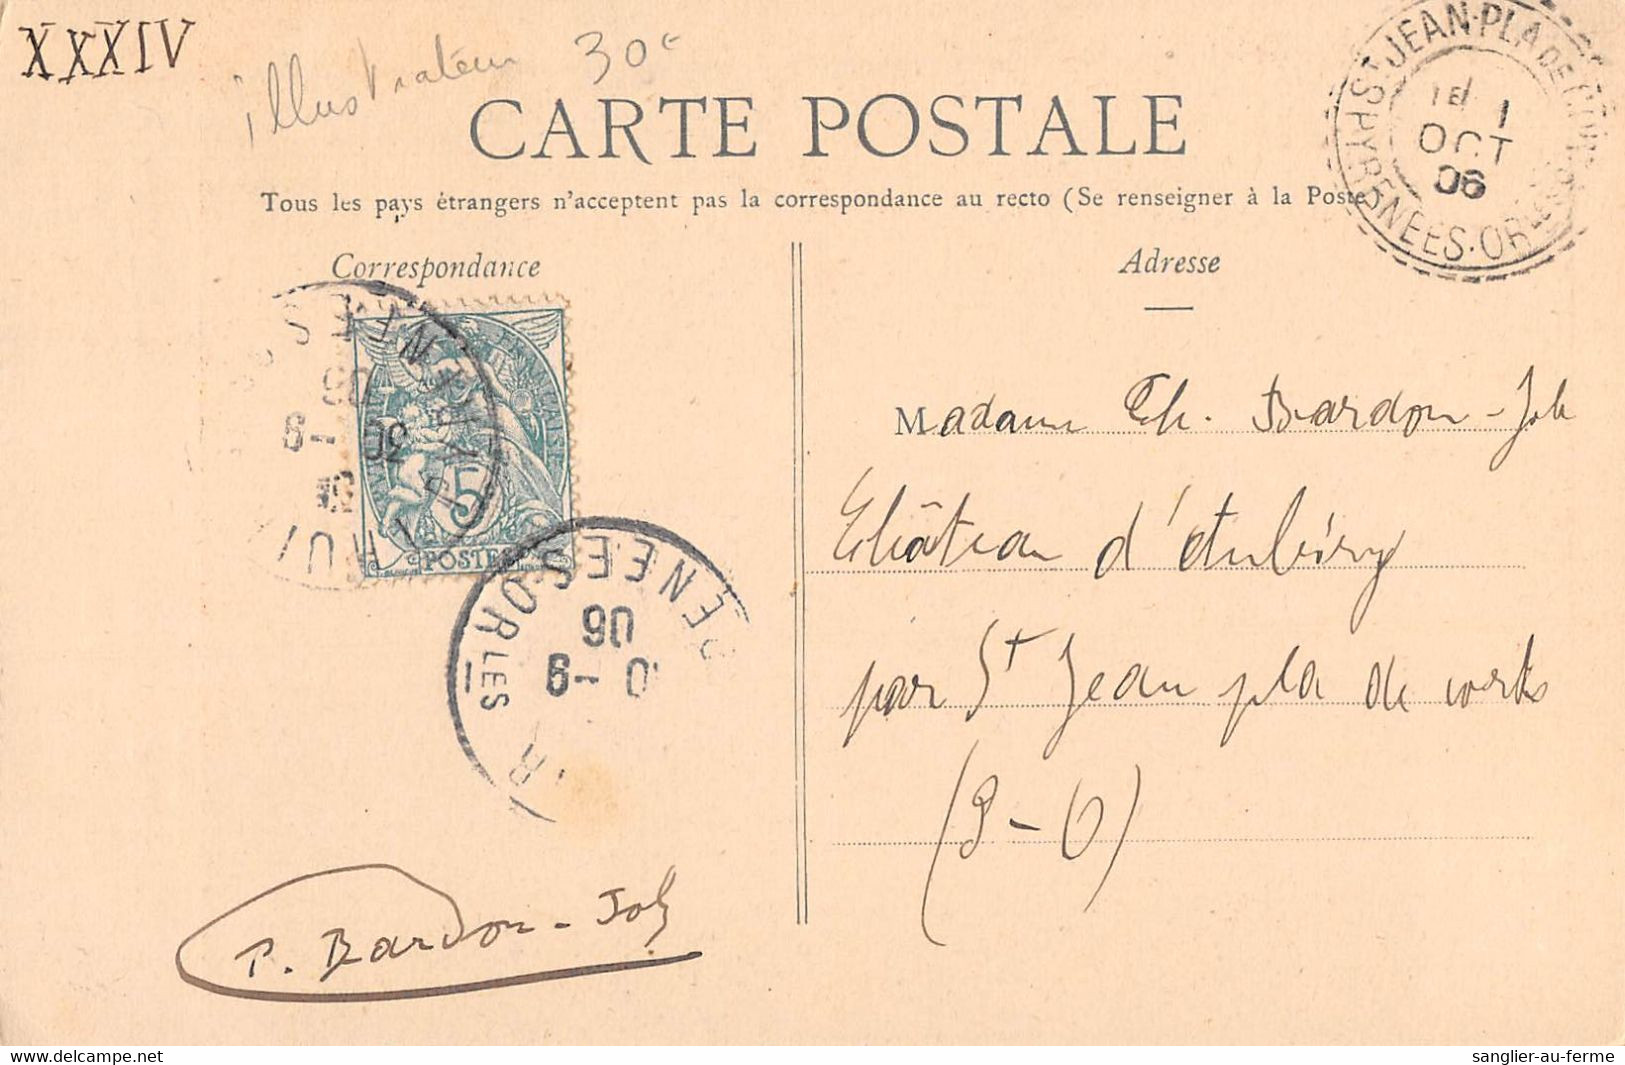 XXXIV
illustrateur 30€
CARTE POSTALE
Tous les pays étrangers n'acceptent pas la correspondance au recto (Se renseigner à la Poste)
Correspondance
Adresse
ST JEAN-PLA DE
PYRÉNÉES-ORLES
1
OCT
06
5
POSTES
PYRÉNÉES-ORLES
06
Madame Ch. Bardon-Job
Château d'Aubiry
par St Jean pla de corts
(P-O)
P. Bardou-Job
sanglier-au-ferme
www.delcampe.net